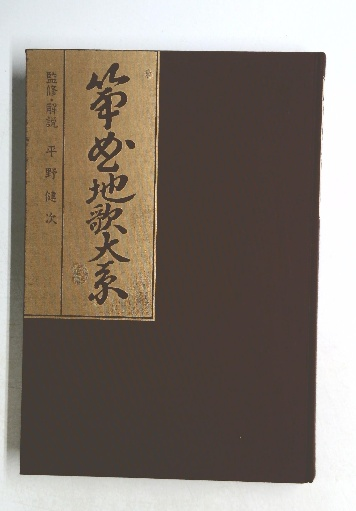 箏曲地歌大系
監修・解説 平野健次